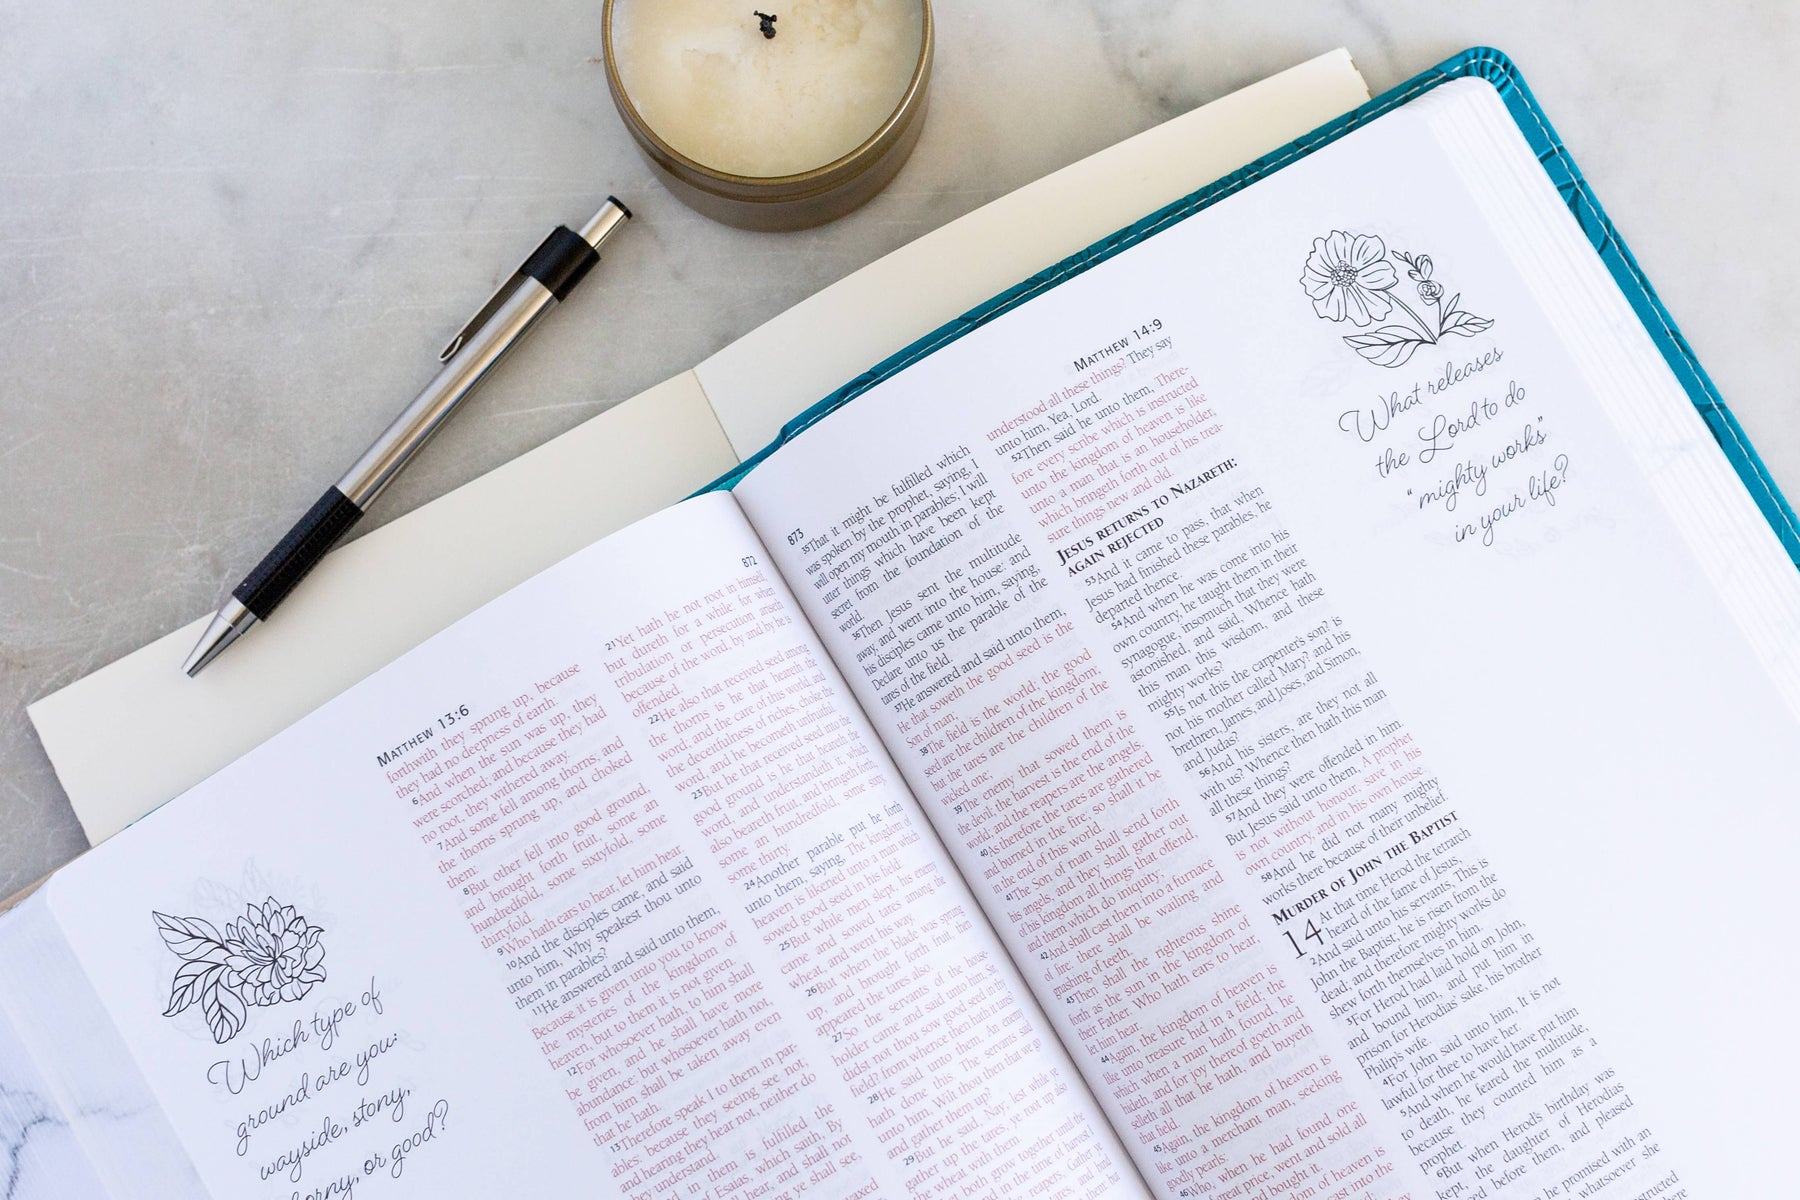 MATTHEW 13:6
872
forthwith they sprung up, because
they had no deepness of earth:
6And when the sun was up, they
were scorched; and because they had
no root, they withered away.
7And some fell among thorns; and
the thorns sprung up, and choked
them:
8But other fell into good ground,
and brought forth fruit, some an
hundredfold, some sixtyfold, some
thirtyfold.
9Who hath ears to hear, let him hear.
10And the disciples came, and said
unto him, Why speakest thou unto
them in parables?
11He answered and said unto them,
Because it is given unto you to know
the mysteries of the kingdom of
heaven, but to them it is not given.
12For whosoever hath, to him shall
be given, and he shall have more
abundance: but whosoever hath not,
from him shall be taken away even
that he hath.
13Therefore speak I to them in par-
ables: because they seeing see not;
and hearing they hear not, neither do
they understand.
in them is fulfilled the
of Esaias, which saith, By
hear, and shall not
ye shall see,
waxed
21Yet hath he not root in himself,
but dureth for a while: for when
tribulation or persecution ariseth
because of the word, by and by he is
offended.
22He also that received seed among
the thorns is he that heareth the
word; and the care of this world, and
the deceitfulness of riches, choke the
word, and he becometh unfruitful.
23But he that received seed into the
good ground is he that heareth the
word, and understandeth it; which
also beareth fruit, and bringeth forth,
some an hundredfold, some sixty,
some thirty.
24Another parable put he forth
unto them, saying, The kingdom of
heaven is likened unto a man which
sowed good seed in his field:
25But while men slept, his enemy
came and sowed tares among the
wheat, and went his way.
26But when the blade was sprung
up, and brought forth fruit, then
appeared the tares also.
27So the servants of the house-
holder came and said unto him, Sir,
didst not thou sow good seed in thy
field? from whence then hath it tares?
28He said unto them, An enemy
hath done this. The servants said
unto him, Wilt thou then that we go
and gather them up?
29But he said, Nay; lest while ye
gather up the tares, ye root up also
the wheat with them.
both grow together until the
in the time of harvest I
Gather ye
tares, and bind
Which type of
ground are you:
wayside, stony,
thorny, or good?
873
MATTHEW 14:9
35That it might be fulfilled which
was spoken by the prophet, saying, I
will open my mouth in parables; I will
utter things which have been kept
secret from the foundation of the
world.
36Then Jesus sent the multitude
away, and went into the house: and
his disciples came unto him, saying,
Declare unto us the parable of the
tares of the field.
37He answered and said unto them,
He that soweth the good seed is the
Son of man;
38The field is the world; the good
seed are the children of the kingdom;
but the tares are the children of the
wicked one;
39The enemy that sowed them is
the devil; the harvest is the end of the
world; and the reapers are the angels.
40As therefore the tares are gathered
and burned in the fire; so shall it be
in the end of this world.
41The Son of man shall send forth
his angels, and they shall gather out
of his kingdom all things that offend,
and them which do iniquity;
42And shall cast them into a furnace
of fire: there shall be wailing and
gnashing of teeth.
43Then shall the righteous shine
forth as the sun in the kingdom of
their Father. Who hath ears to hear,
let him hear.
44Again, the kingdom of heaven is
like unto treasure hid in a field; the
which when a man hath found, he
hideth, and for joy thereof goeth and
selleth all that he hath, and buyeth
that field.
45Again, the kingdom of heaven is
like unto a merchant man, seeking
goodly pearls:
46Who, when he had found one
great price, went and sold all
and bought it.
kingdom of heaven is
cast into the
understood all these things? They say
unto him, Yea, Lord.
52Then said he unto them, There-
fore every scribe which is instructed
unto the kingdom of heaven is like
unto a man that is an householder,
which bringeth forth out of his trea-
sure things new and old.
JESUS RETURNS TO NAZARETH:
AGAIN REJECTED
53And it came to pass, that when
Jesus had finished these parables, he
departed thence.
54And when he was come into his
own country, he taught them in their
synagogue, insomuch that they were
astonished, and said, Whence hath
this man this wisdom, and these
mighty works?
55Is not this the carpenter's son? is
not his mother called Mary? and his
brethren, James, and Joses, and Simon,
and Judas?
56And his sisters, are they not all
with us? Whence then hath this man
all these things?
57And they were offended in him.
But Jesus said unto them, A prophet
is not without honour, save in his
own country, and in his own house.
58And he did not many mighty
works there because of their unbelief.
MURDER OF JOHN THE BAPTIST
14 At that time Herod the tetrarch
heard of the fame of Jesus,
2And said unto his servants, This is
John the Baptist; he is risen from the
dead; and therefore mighty works do
shew forth themselves in him.
3For Herod had laid hold on John,
and bound him, and put him in
prison for Herodias' sake, his brother
Philip's wife.
4For John said unto him, It is not
lawful for thee to have her.
5And when he would have put him
to death, he feared the multitude,
because they counted him as a
prophet.
6But when Herod's birthday was
kept, the daughter of Herodias
danced before them, and pleased
he promised with an
whatsoever she
instructed
What releases
the Lord to do
"mighty works"
in your life?